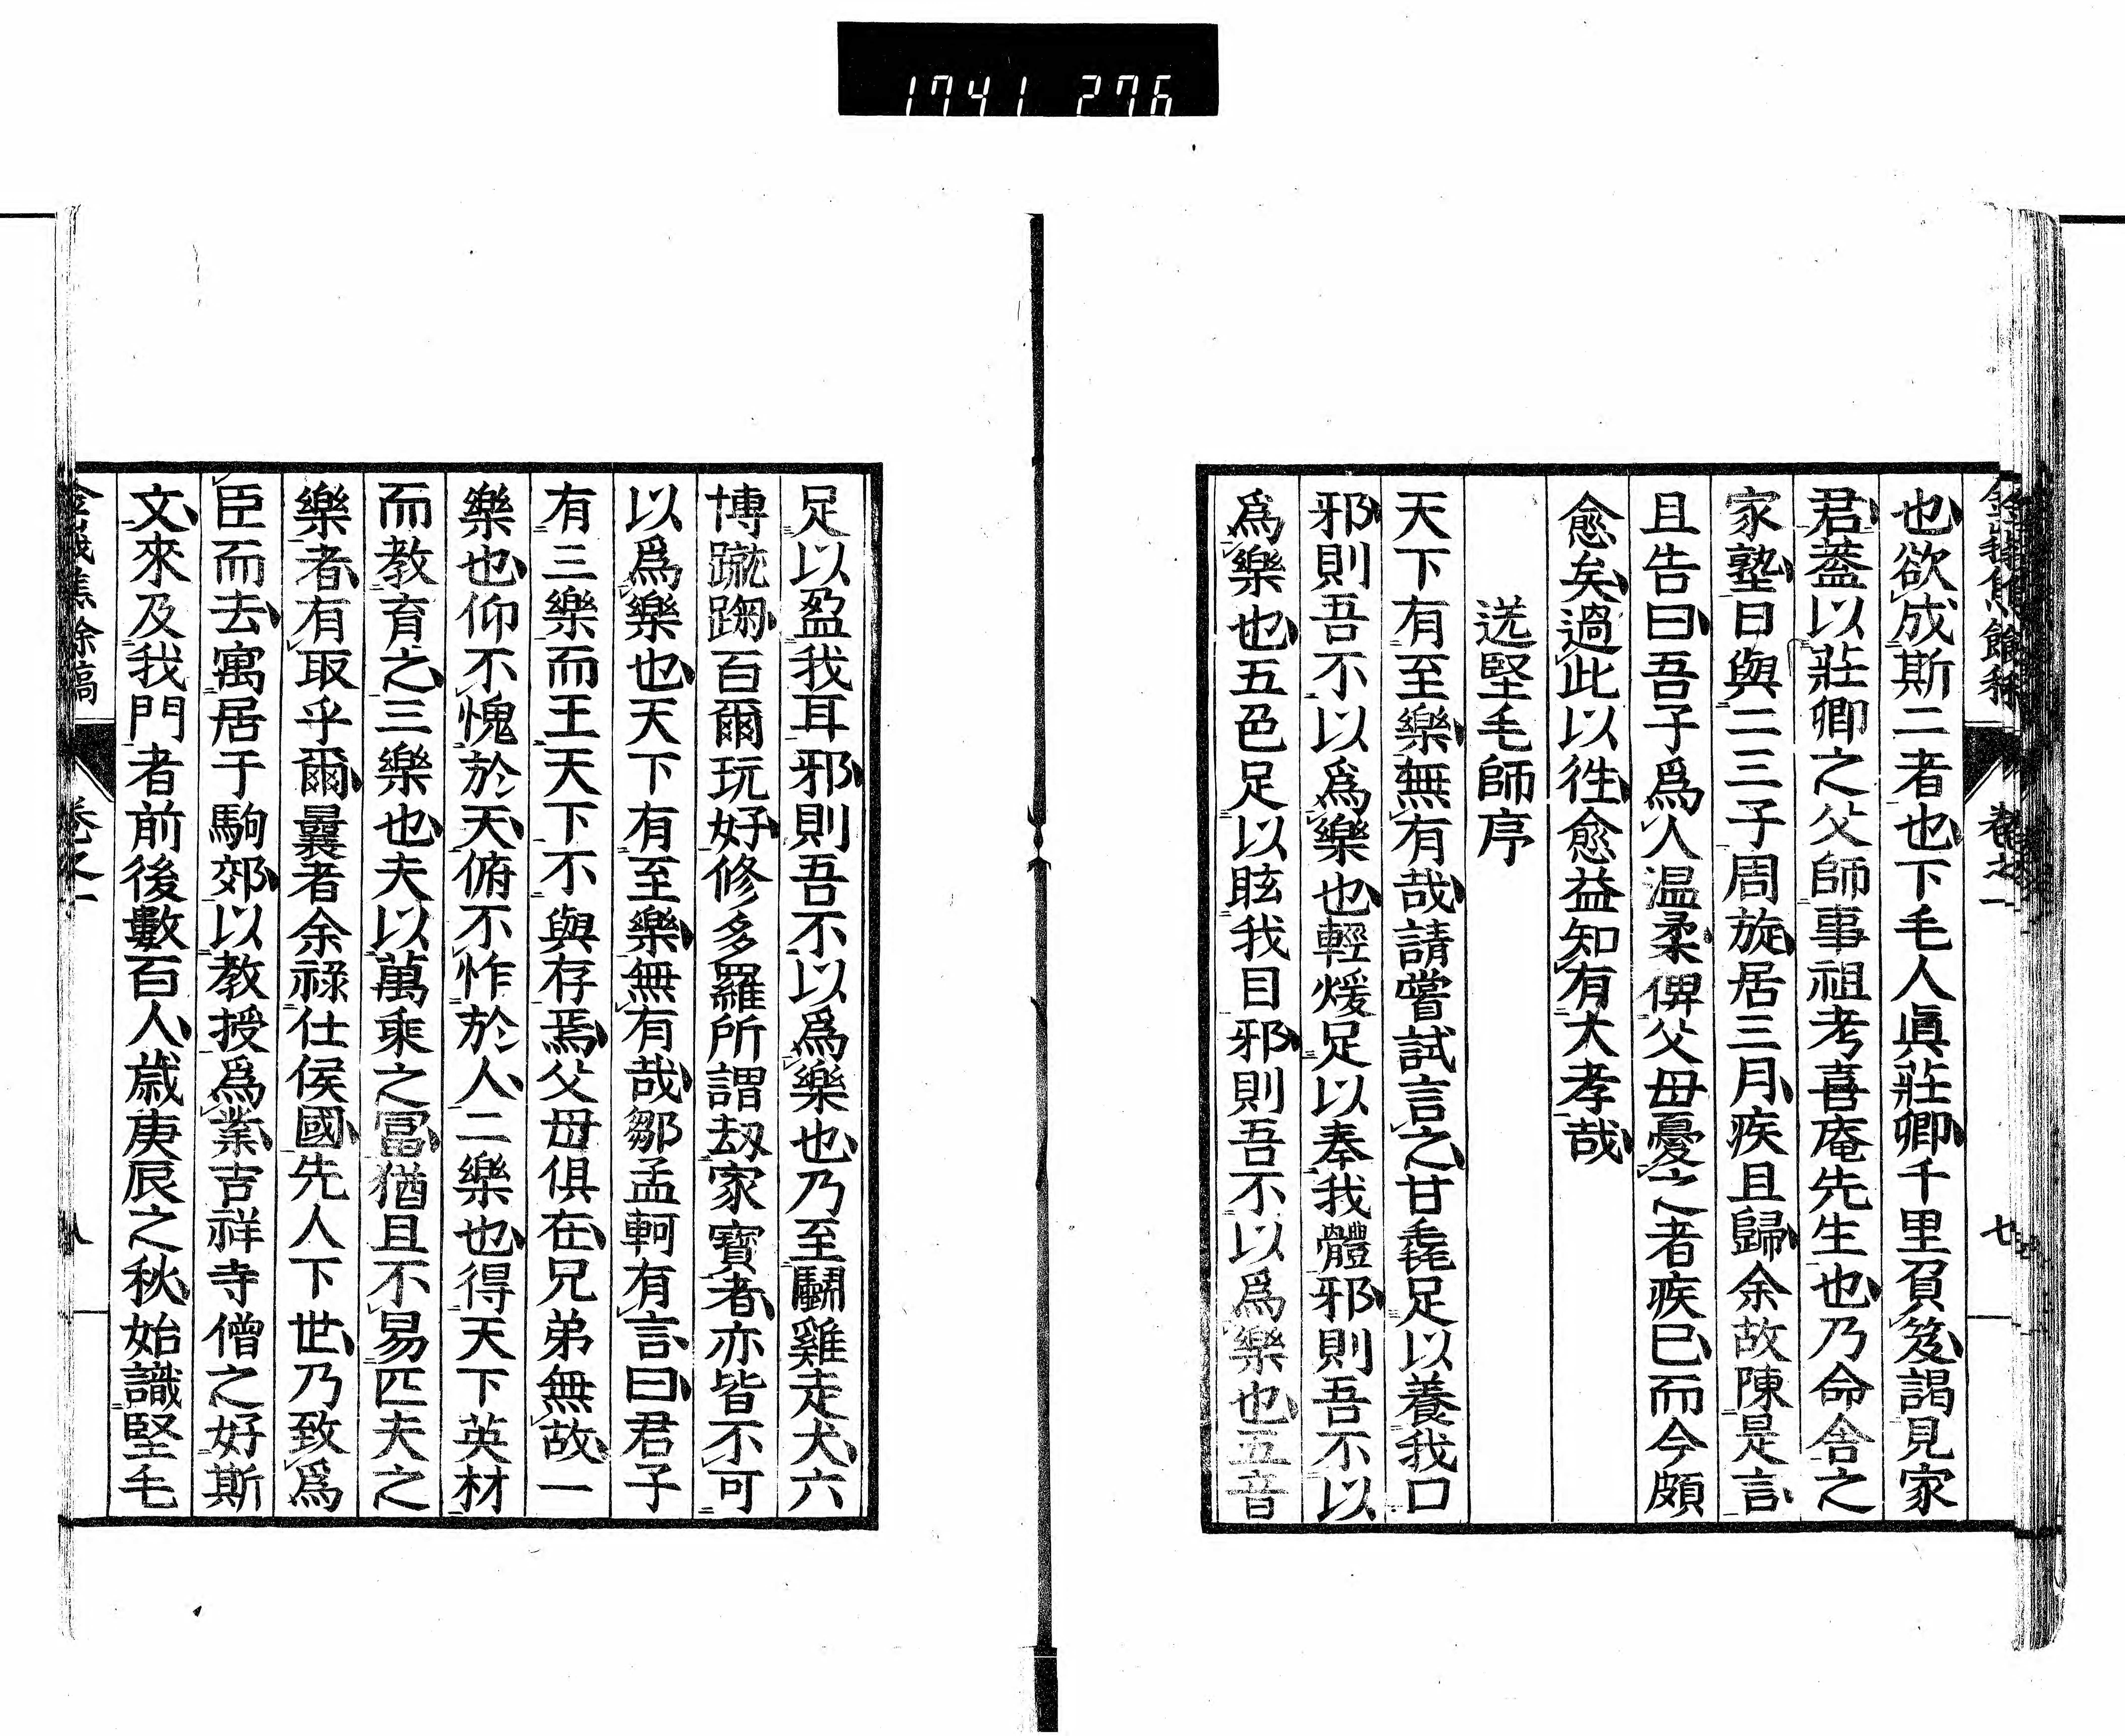 1741 276
也欲成斯二者也下毛人眞莊卿千里負笈謁見家
君葢以莊卿之父師事祖考喜庵先生也乃命舎之
家塾日與二三子周旋居三月疾且歸余故陳是言
且告曰吾子爲人温柔俾父母憂之者疾已而今頗
愈矣過此以徃愈益知有大孝哉
送堅毛師序
天下有至樂無有哉請嘗試言之甘毳足以養我口
邪則吾不以爲樂也輕煖足以奉我體邪則吾不以
爲樂也五色足以眩我目邪則吾不以爲樂也五音
足以盈我耳邪則吾不以爲樂也乃至鬭雞走犬六
博蹴踘百爾玩好修多羅所謂刼家寶者亦皆不可
以爲樂也天下有至樂無有哉鄒孟軻有言曰君子
有三樂而王天下不與存焉父母俱在兄弟無故一
樂也仰不愧於天俯不怍於人二樂也得天下英材
而教育之三樂也夫以萬乘之冨猶且不易匹夫之
樂者有取乎爾曩者余祿仕侯國先人下世乃致爲
臣而去寓居于駒郊以教授爲業吉祥寺僧之好斯
文來及我門者前後數百人歳庚辰之秋始識堅毛
餘稿